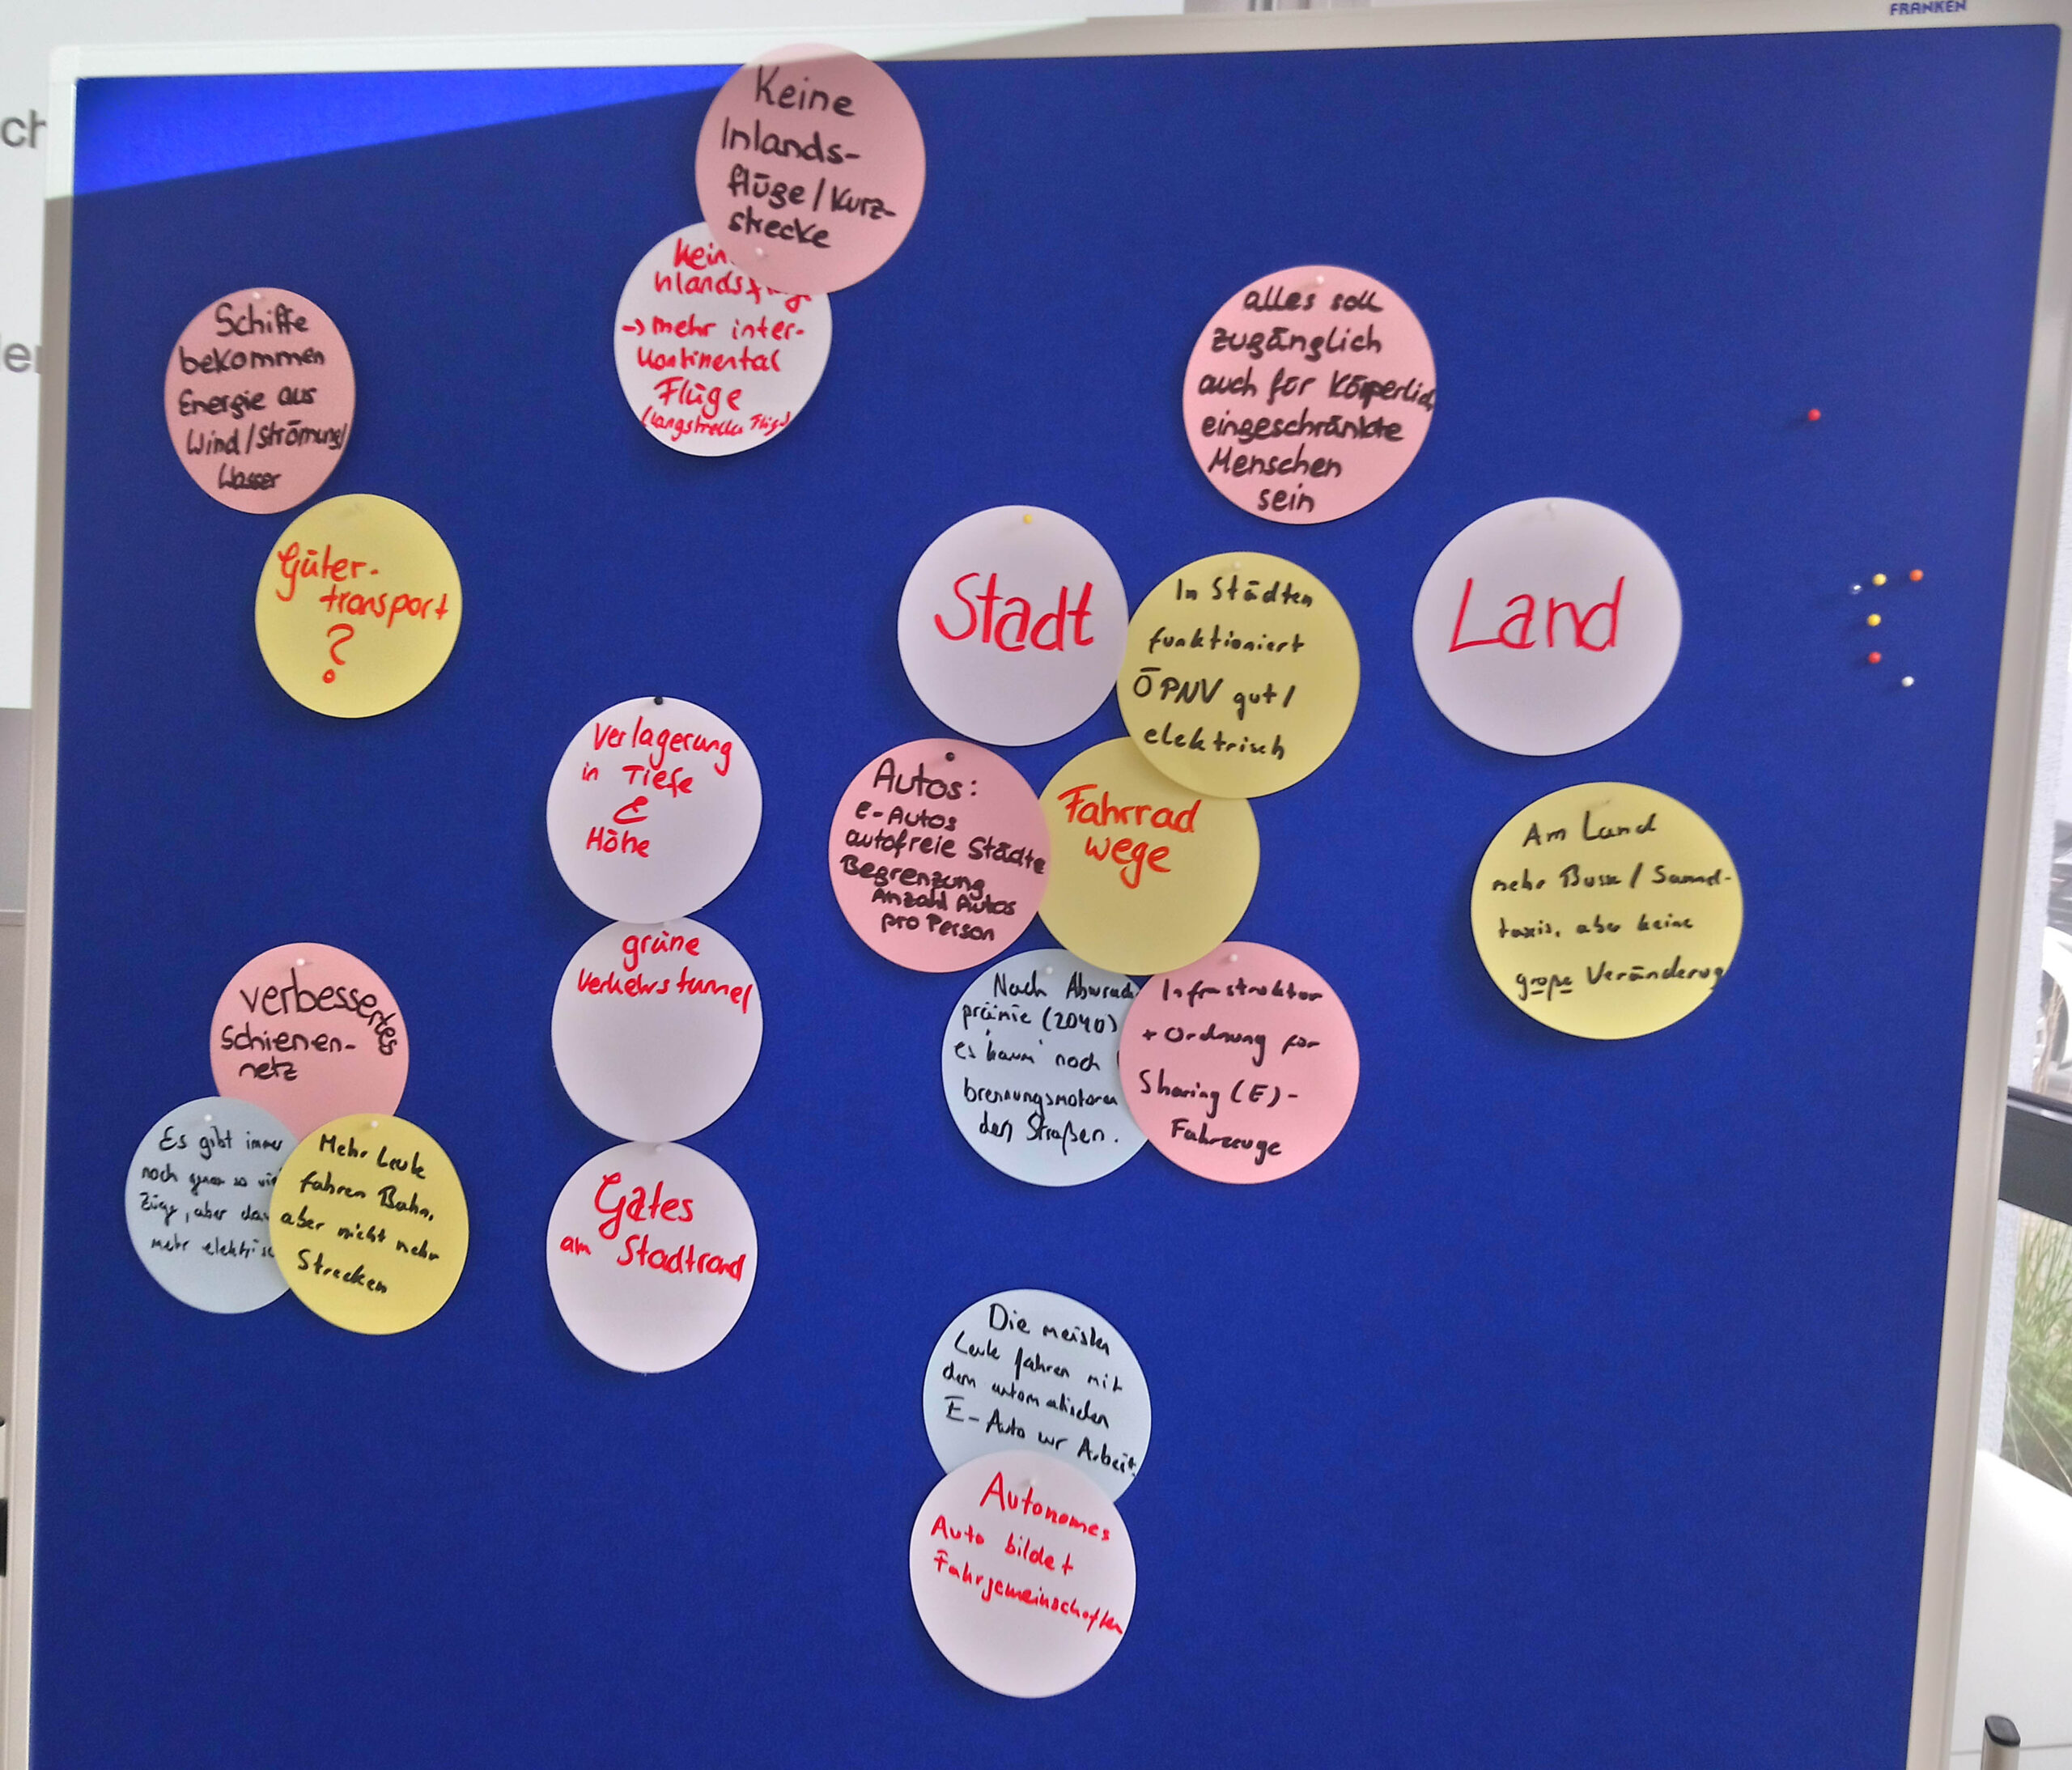 FRANKEN
ch
Keine
Inlands-
flüge/Kurz-
strecke
Kein
nlandsf
-> mehr inter-
Kontinental
Flüge
Schiffe
bekommen
Energie aus
Wind/Strömung/
Wasser
Güter-
transport
?
alles soll
zugänglich
auch für Körperlich
eingeschränkte
Menschen
sein
Stadt
In Städten
funktioniert
ÖPNV gut/
elektrisch
Land
Verlagerung
in Tiefe
&
Höhe
grüne
Verkehrstunnel
Gates
am Stadtrand
Autos:
E-Autos
autofreie Städte
Begrenzung
Anzahl Autos
pro Person
Fahrrad
wege
Am Land
mehr Busse / Sammel-
taxis, aber keine
große Veränderung
Nach Abwrack
prämie (2040)
es kaum noch
brennungsmotoren
den Straßen.
Infrastruktur
+ Ordnung für
Sharing (E)-
Fahrzeuge
verbessertes
Schienen-
netz
Es gibt immer
noch genau so vi
Züge, aber da
mehr elektrisc
Mehr Leute
fahren Bahn,
aber nicht mehr
Strecken
Die meisten
Leute fahren mit
dem automatischen
E-Auto zur Arbeit.
Autonomes
Auto bildet
Fahrgemeinschaften